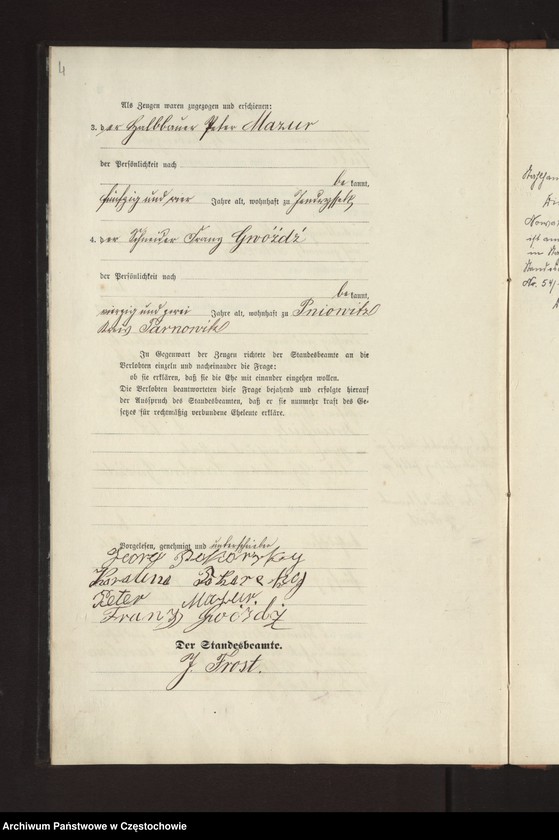 4
Als Zeugen waren zugezogen und erschienen:
3. der Halbbauer Peter Mazur
der Persönlichkeit nach
be kannt,
fünfzig und vier Jahre alt, wohnhaft zu
4. der Schneider Franz Gwóźdź
der Persönlichkeit nach
be kannt,
vierzig und zwei Jahre alt, wohnhaft zu Pniowitz
Kreis Tarnowitz
In Gegenwart der Zeugen richtete der Standesbeamte an die
Verlobten einzeln und nacheinander die Frage:
ob sie erklären, daß sie die Ehe mit einander eingehen wollen.
Die Verlobten beantworteten diese Frage bejahend und erfolgte hierauf
der Ausspruch des Standesbeamten, daß er sie nunmehr kraft des Ge-
setzes für rechtmäßig verbundene Eheleute erkläre.
Vorgelesen, genehmigt und unterschrieben
Georg
Peter Mazur
Franz Gwóźdź
Der Standesbeamte.
J. Frost.
ist am
in
Nr. 54
Archiwum Państwowe w Częstochowie